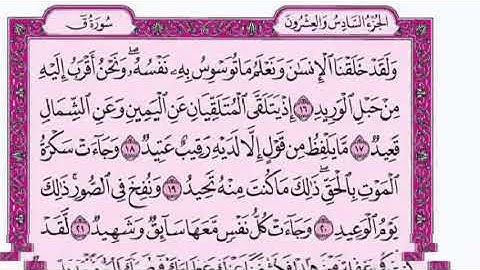 الجزء السادس والعشرون
سورة ق
وَلَقَدْ خَلَقْنَا ٱلْإِنسَٰنَ وَنَعْلَمُ مَا تُوَسْوِسُ بِهِۦ نَفْسُهُۥ ۖ وَنَحْنُ أَقْرَبُ إِلَيْهِ
مِنْ حَبْلِ ٱلْوَرِيدِ ١٦ إِذْ يَتَلَقَّى ٱلْمُتَلَقِّيَانِ عَنِ ٱلْيَمِينِ وَعَنِ ٱلشِّمَالِ
قَعِيدٌ ١٧ مَّا يَلْفِظُ مِن قَوْلٍ إِلَّا لَدَيْهِ رَقِيبٌ عَتِيدٌ ١٨ وَجَآءَتْ سَكْرَةُ
ٱلْمَوْتِ بِٱلْحَقِّ ۖ ذَٰلِكَ مَا كُنتَ مِنْهُ تَحِيدُ ١٩ وَنُفِخَ فِى ٱلصُّورِ ۚ ذَٰلِكَ
يَوْمُ ٱلْوَعِيدِ ٢٠ وَجَآءَتْ كُلُّ نَفْسٍ مَّعَهَا سَآئِقٌ وَشَهِيدٌ ٢١ لَّقَدْ